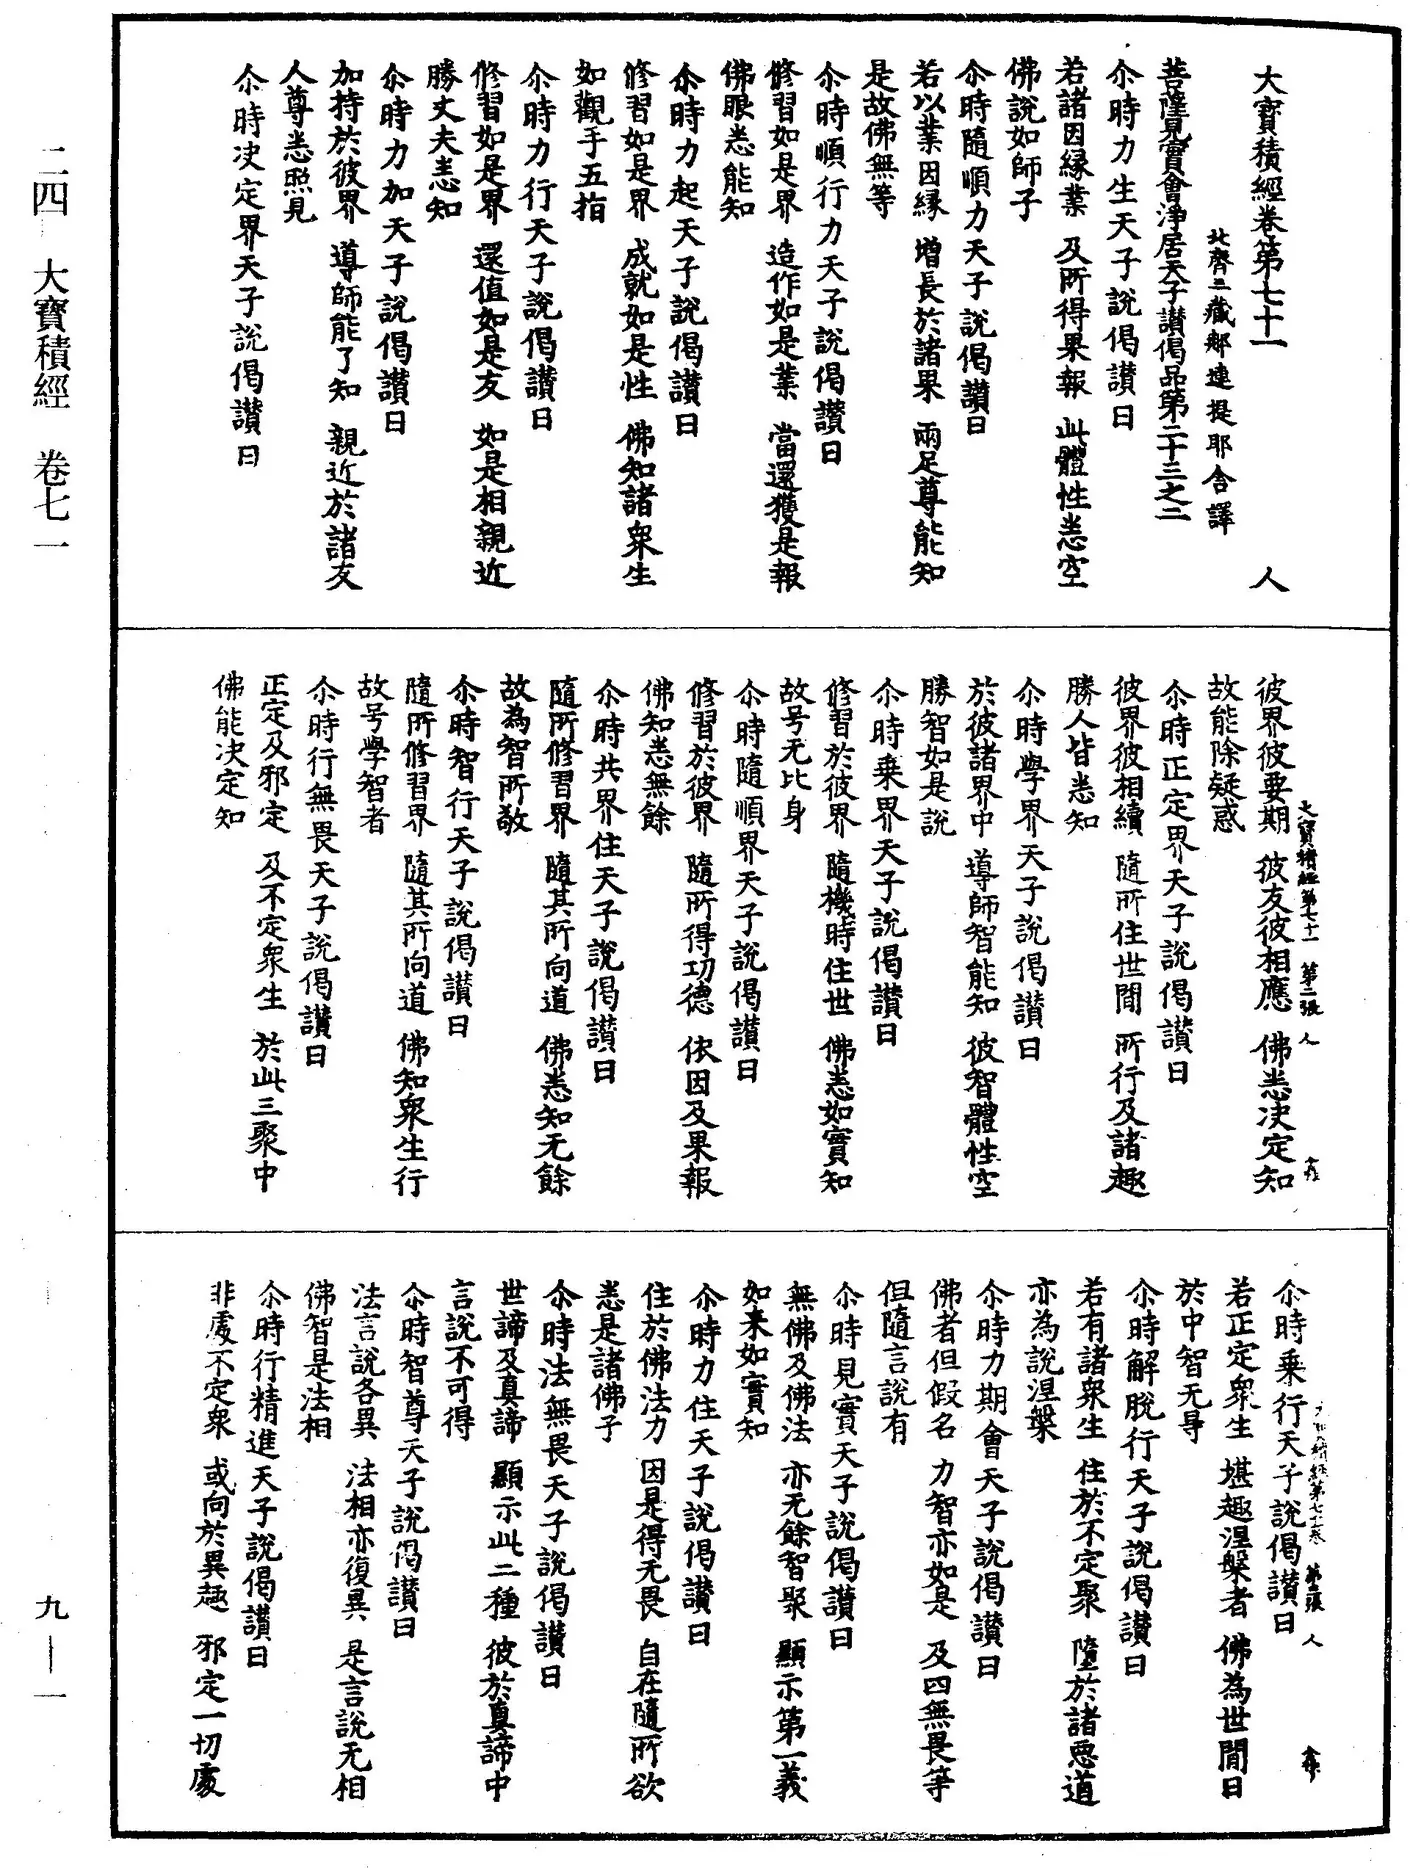 大寶積經卷第七十一　人
北齊三藏那連提耶舍譯
菩薩見實會淨居天子讃偈品第二十三之二
尒時力生天子說偈讃曰
若諸因緣業　及所得果報　此體性悉空
佛說如師子
尒時隨順力天子說偈讃曰
若以業因緣　增長於諸果　兩足尊能知
是故佛無等
尒時順行力天子說偈讃曰
修習如是界　造作如是業　當還獲是報
佛眼悉能知
尒時力起天子說偈讃曰
修習如是界　成就如是性　佛知諸衆生
如觀手五指
尒時力行天子說偈讃曰
修習如是界　還值如是友　如是相親近
勝丈夫悉知
尒時力加天子說偈讃曰
加持於彼界　導師能了知　親近於諸友
人尊悉照見
尒時决定界天子說偈讃曰
大寶積經第七十一　第二張　人
彼界彼要期　彼友彼相應　佛悉决定知
故能除疑惑
尒時正定界天子說偈讃曰
彼界彼相續　隨所住世間　所行及諸趣
勝人皆悉知
尒時學界天子說偈讃曰
於彼諸界中　導師智能知　彼智體性空
勝智如是說
尒時乗界天子說偈讃曰
修習於彼界　隨機時住世　佛悉如實知
故号无比身
尒時隨順界天子說偈讃曰
修習於彼界　隨所得功德　依因及果報
佛知悉無餘
尒時共界住天子說偈讃曰
隨所修習界　隨其所向道　佛悉知无餘
故為智所敬
尒時智行天子說偈讃曰
隨所修習界　隨其所向道　佛知衆生行
故号學智者
尒時行無畏天子說偈讃曰
正定及邪定　及不定衆生　於此三聚中
佛能决定知
經第七十一卷　第三張　人
尒時乗行天子說偈讃曰
若正定衆生　堪趣涅槃者　佛為世間日
於中智无㝵
尒時解脫行天子說偈讃曰
若有諸衆生　住於不定聚　墮於諸惡道
亦為說涅槃
尒時力期會天子說偈讃曰
佛者但假名　力智亦如是　及四無畏等
但隨言說有
尒時見實天子說偈讃曰
無佛及佛法　亦无餘智聚　顯示第一義
如来如實知
尒時力住天子說偈讃曰
住於佛法力　因是得无畏　自在隨所欲
悉是諸佛子
尒時法無畏天子說偈讃曰
世諦及真諦　顯示此二種　彼於真諦中
言說不可得
尒時智尊天子說偈讃曰
法言說各異　法相亦復異　是言說无相
佛智是法相
尒時行精進天子說偈讃曰
非處不定衆　或向於異趣　邪定一切處
二四　大寶積經　卷七一
九—一